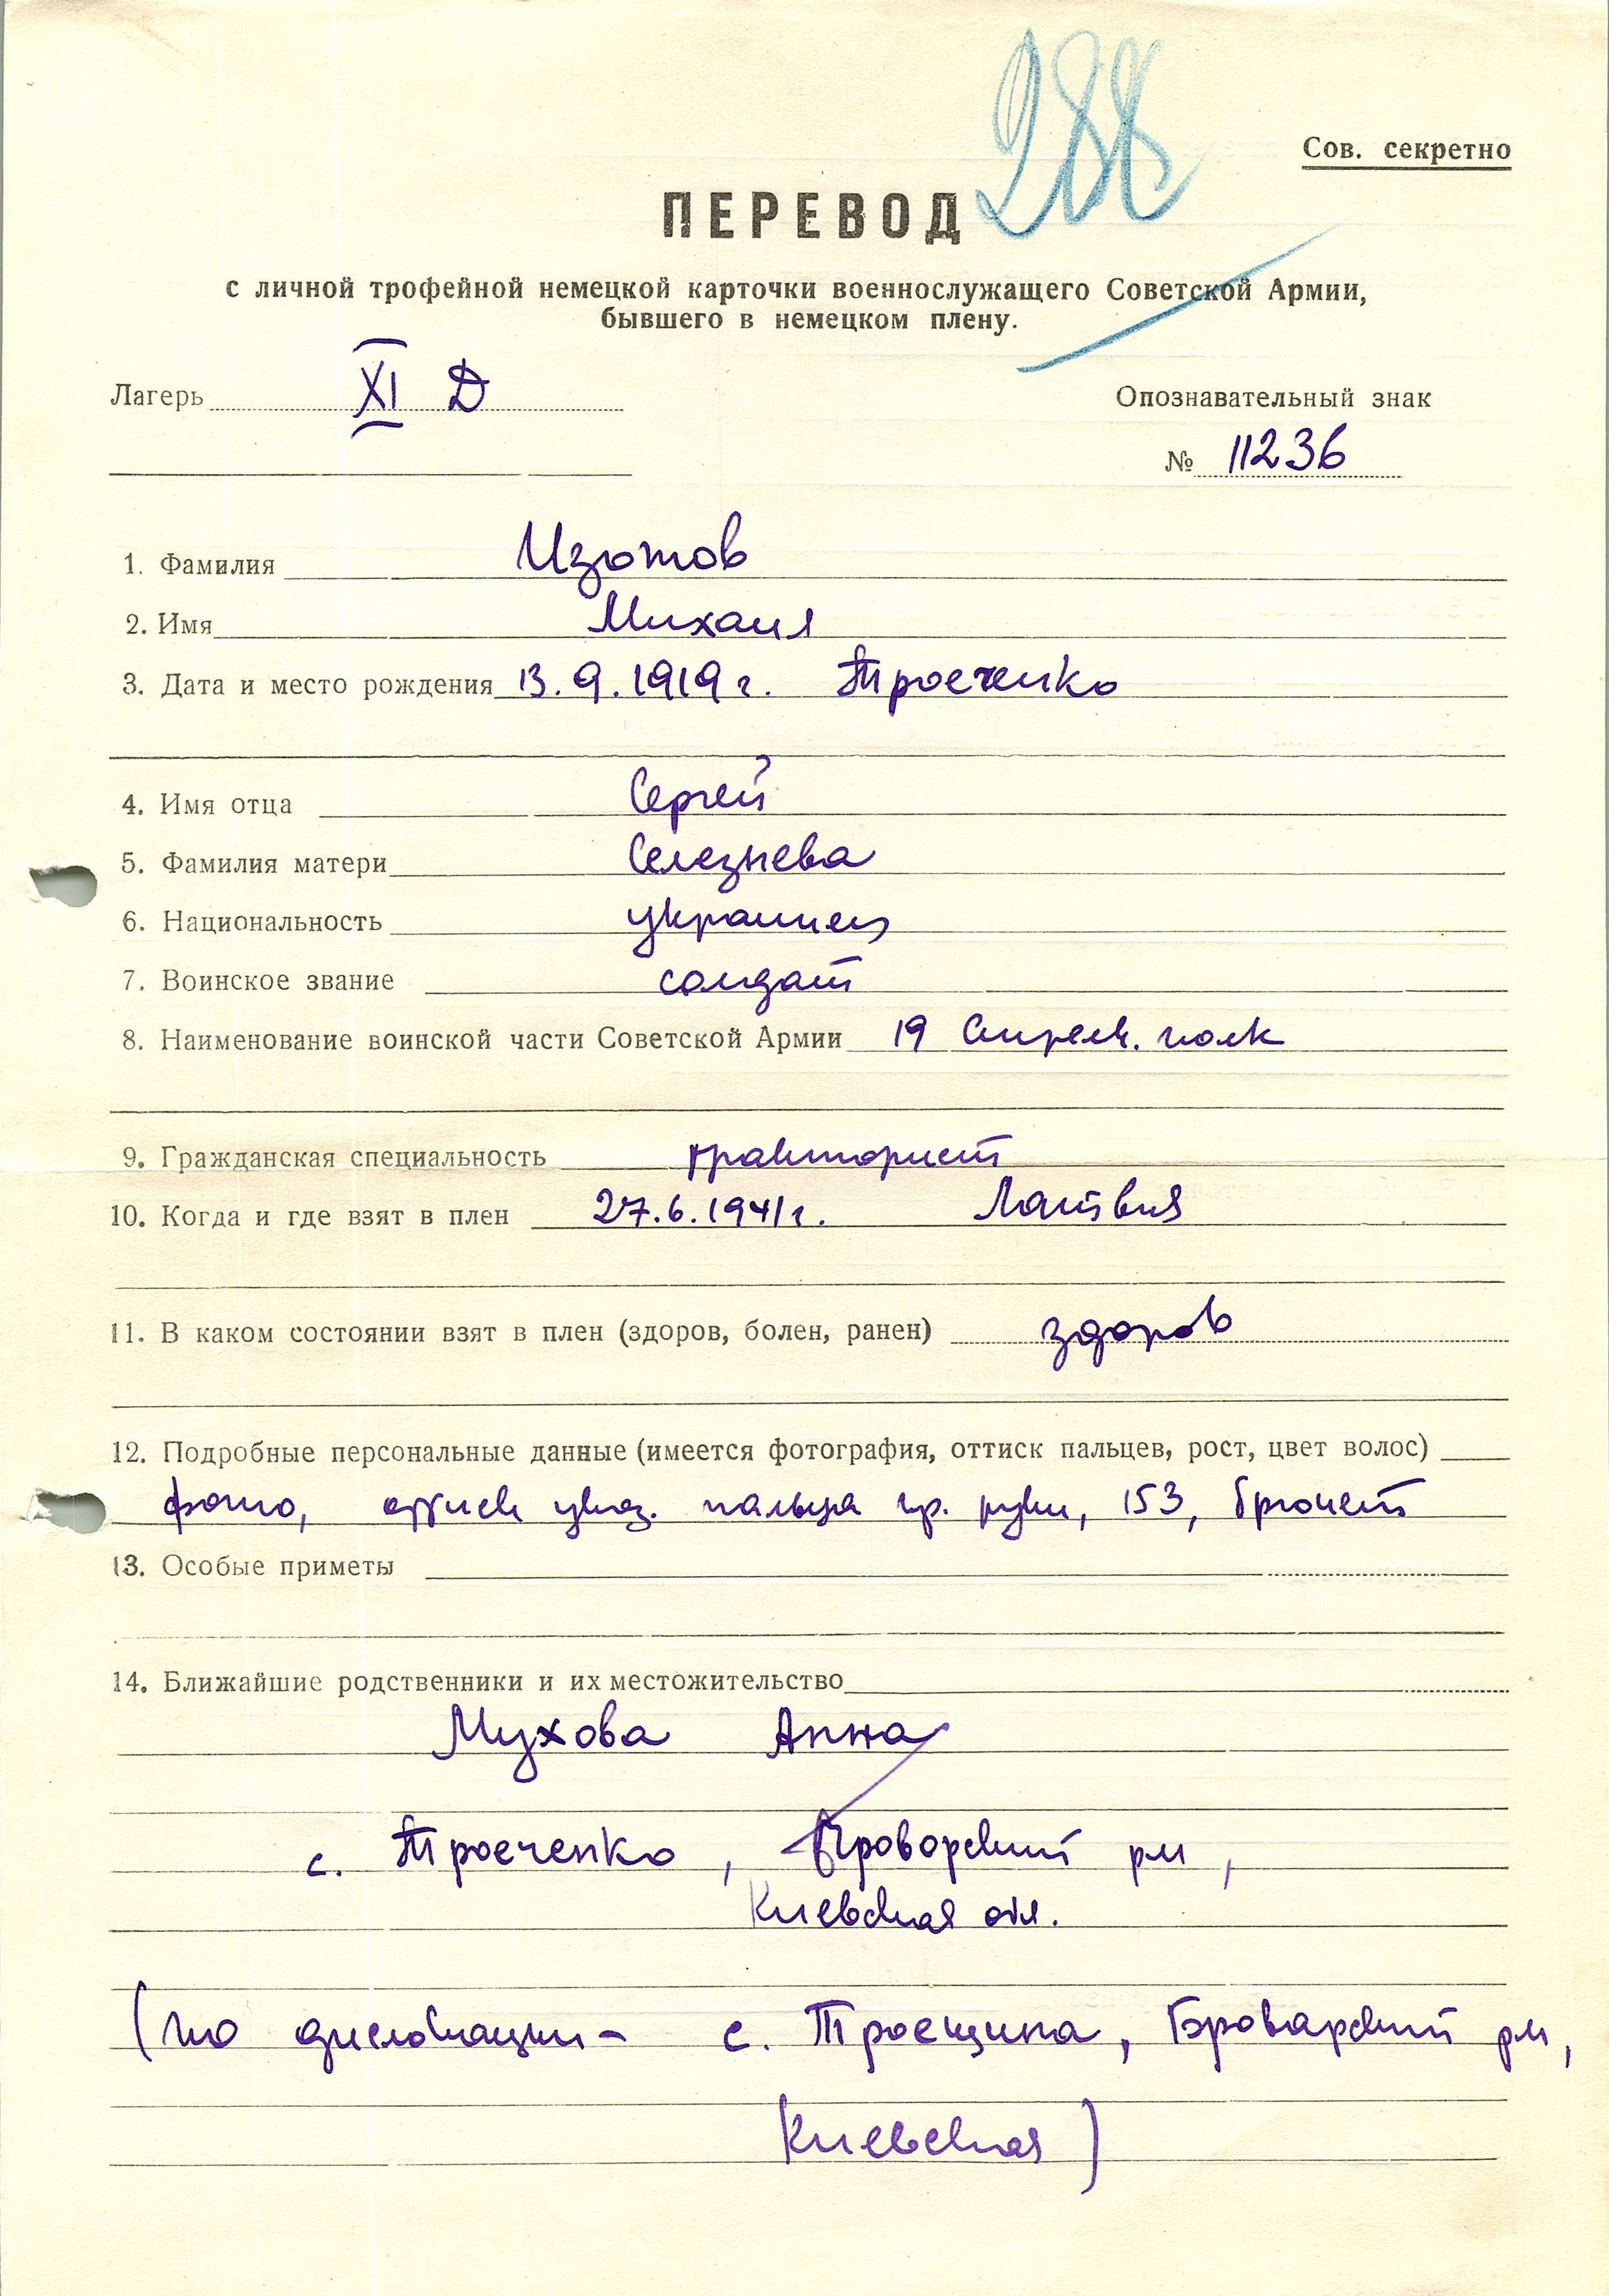 288
Сов. секретно
ПЕРЕВОД
с личной трофейной немецкой карточки военнослужащего Советской Армии,
бывшего в немецком плену.
Лагерь XI D
Опознавательный знак
№ 11236
1. Фамилия Изотов
2. Имя Михаил
3. Дата и место рождения 13.9.1919 г. Троеченко
4. Имя отца Сергей
5. Фамилия матери Селезнева
6. Национальность украинец
7. Воинское звание солдат
8. Наименование воинской части Советской Армии 19 стрелк. полк
9. Гражданская специальность тракторист
10. Когда и где взят в плен 27.6.1941 г. Латвия
11. В каком состоянии взят в плен (здоров, болен, ранен) здоров
12. Подробные персональные данные (имеется фотография, оттиск пальцев, рост, цвет волос)
фото, оттиск указ. пальца пр. руки, 153, брюнет
13. Особые приметы
14. Ближайшие родственники и их местожительство
Мухова Анна
с. Троеченко, Броворский р-н,
Киевская обл.
(по дислокации - с. Троещина, Броварский р-н,
Киевская)